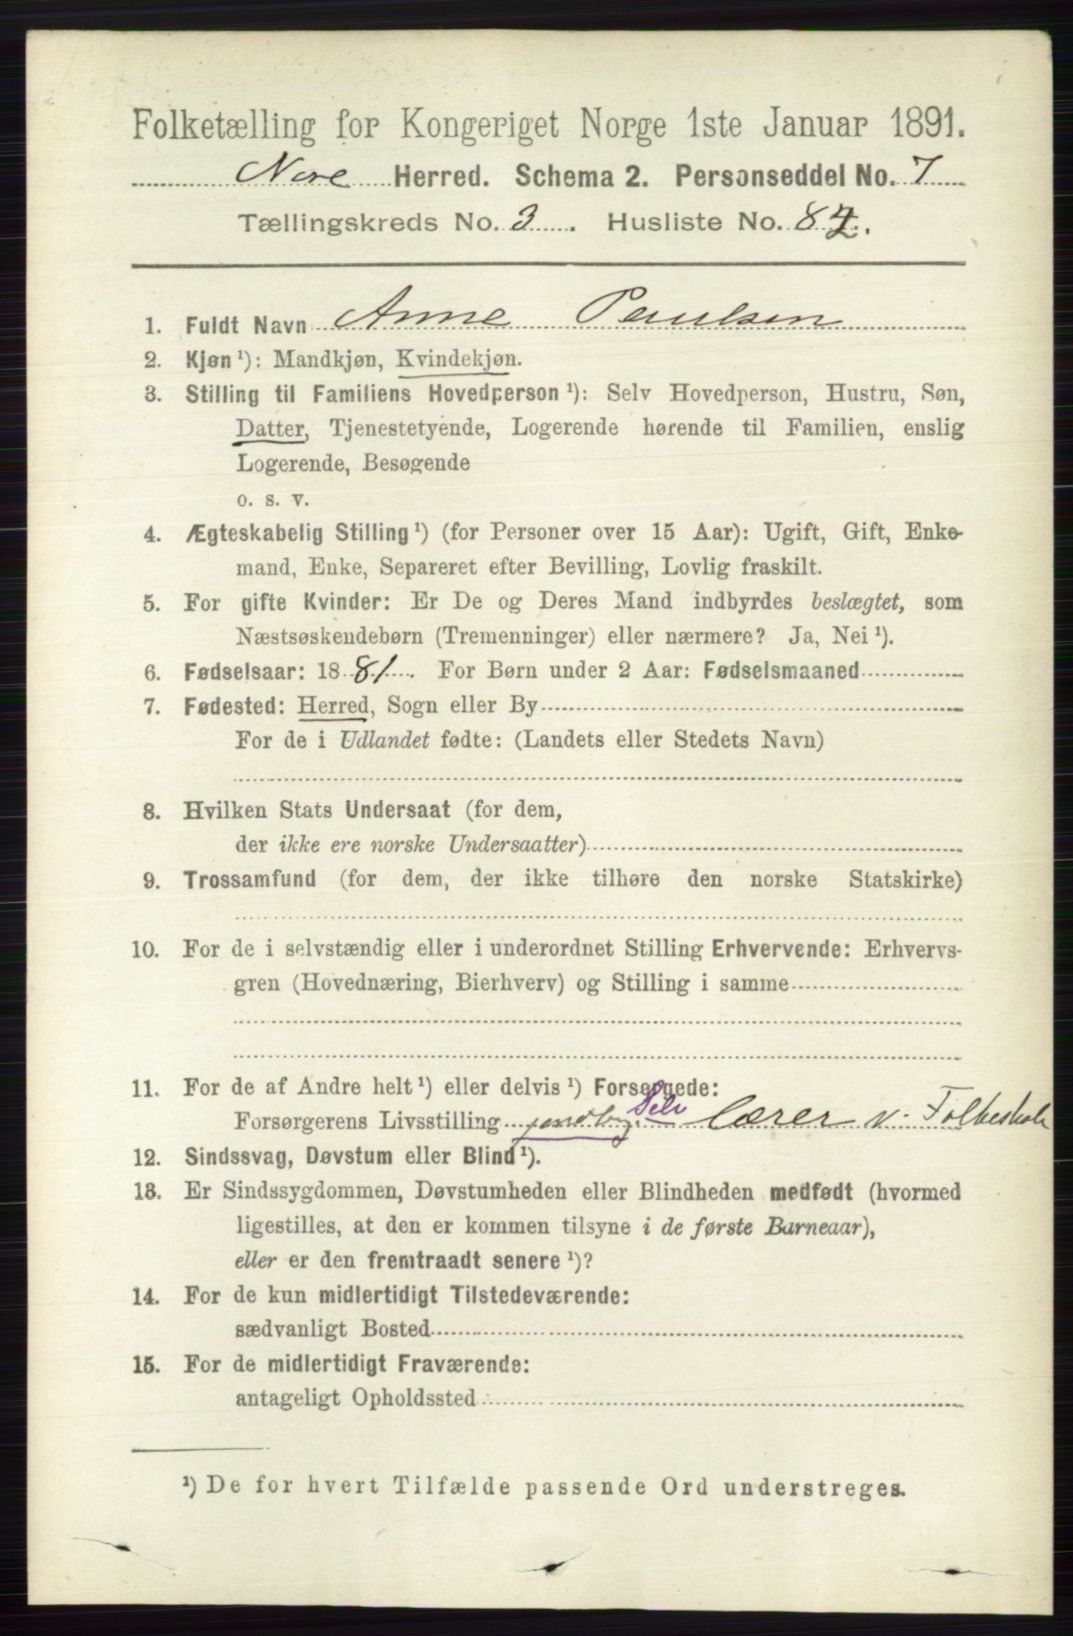 Folketælling for Kongeriget Norge 1ste Januar 1891.
Nore Herred. Schema 2. Personseddel No. 7
Tællingskreds No. 3. Husliste No. 82.
1. Fuldt Navn Anne Paulsen
2. Kjøn ¹): Mandkjøn, Kvindekjøn.
3. Stilling til Familiens Hovedperson ¹): Selv Hovedperson, Hustru, Søn,
Datter, Tjenestetyende, Logerende hørende til Familien, enslig
Logerende, Besøgende
o. s. v.
4. Ægteskabelig Stilling ¹) (for Personer over 15 Aar): Ugift, Gift, Enke-
mand, Enke, Separeret efter Bevilling, Lovlig fraskilt.
5. For gifte Kvinder: Er De og Deres Mand indbyrdes beslægtet, som
Næstsøskendebørn (Tremenninger) eller nærmere? Ja, Nei ¹).
6. Fødselsaar: 1881. For Børn under 2 Aar: Fødselsmaaned
7. Fødested: Herred, Sogn eller By
For de i Udlandet fødte: (Landets eller Stedets Navn)
8. Hvilken Stats Undersaat (for dem,
der ikke ere norske Undersaatter)
9. Trossamfund (for dem, der ikke tilhøre den norske Statskirke)
10. For de i selvstændig eller i underordnet Stilling Erhvervende: Erhvervs-
gren (Hovednæring, Bierhverv) og Stilling i samme
11. For de af Andre helt ¹) eller delvis ¹) Forsørgede:
Forsørgerens Livsstilling jordbr. Selv lærer v. Folkeskole
12. Sindssvag, Døvstum eller Blind ¹).
13. Er Sindssygdommen, Døvstumheden eller Blindheden medfødt (hvormed
ligestilles, at den er kommen tilsyne i de første Barneaar),
eller er den fremtraadt senere ¹)?
14. For de kun midlertidigt Tilstedeværende:
sædvanligt Bosted
15. For de midlertidigt Fraværende:
antageligt Opholdssted
¹) De for hvert Tilfælde passende Ord understreges.